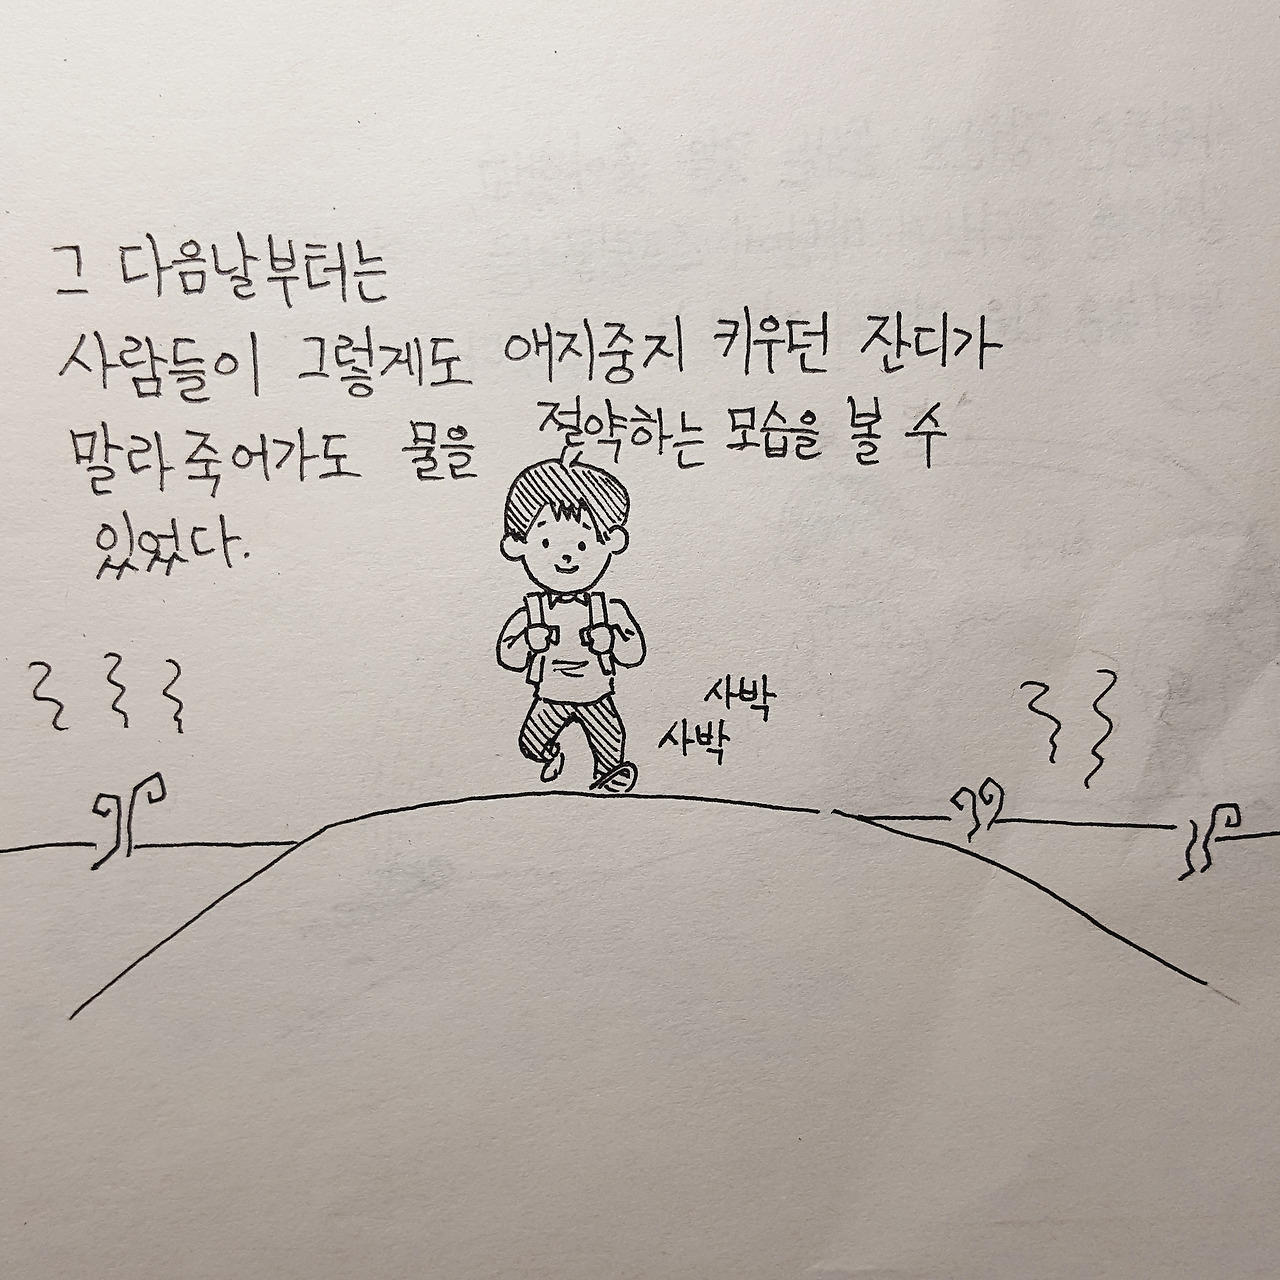 그 다음날부터는
사람들이 그렇게도 애지중지 키우던 잔디가
말라죽어가도 물을 절약하는 모습을 볼 수
있었다.
사박
사박